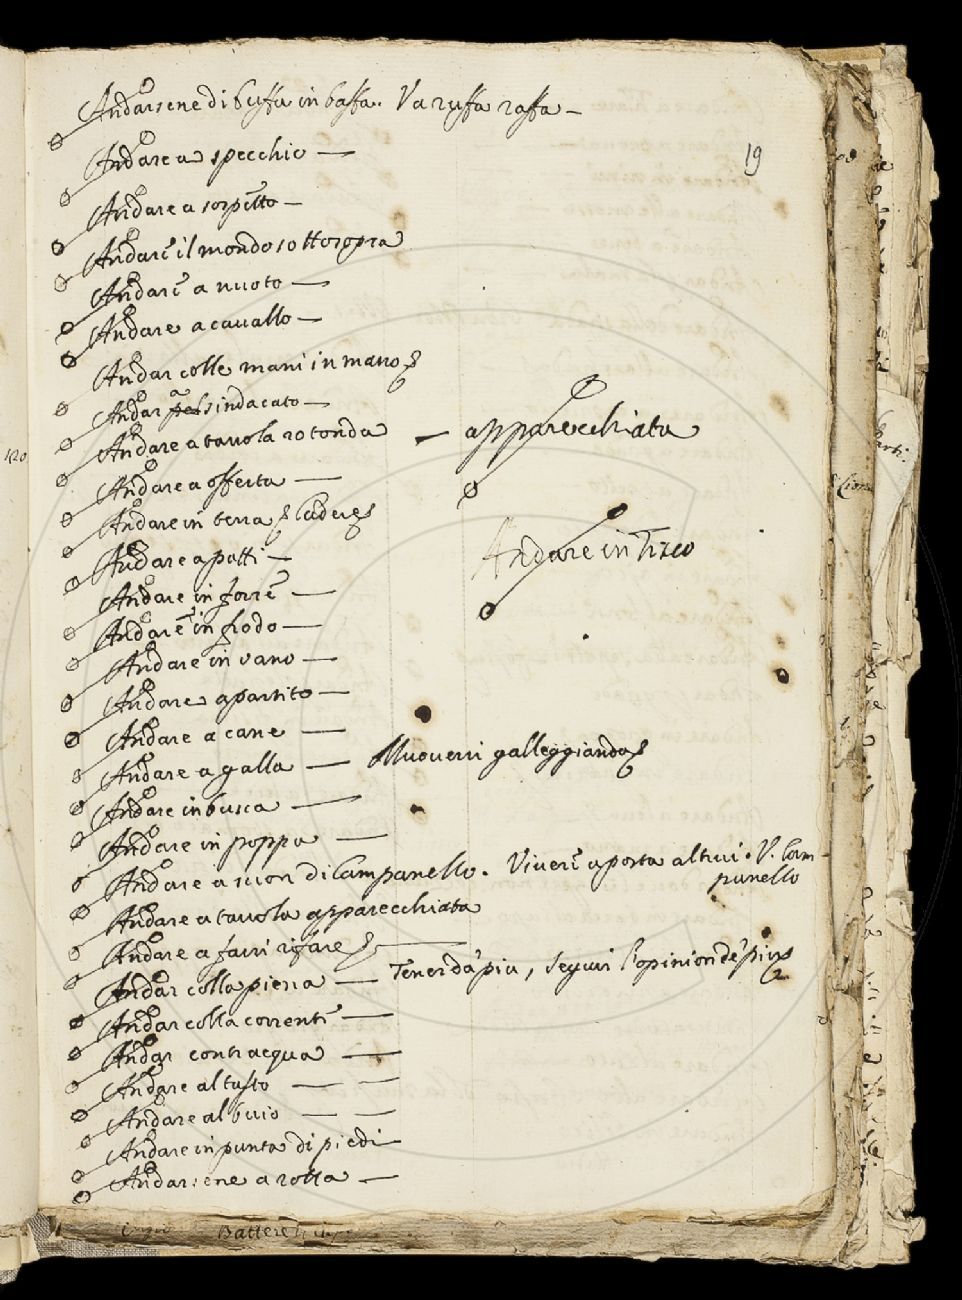 Andarsene di buffa in baffa. V a ruffa raffa —
Andare a specchio —
19
Andare a sospetto —
Andare il mondo sottosopra
Andare a nuoto —
Andare a cavallo —
Andar colle mani in mano
Andar a sindacato —
Andare a tavola rotonda — apparecchiata
Andare a offerta —
Andare in terra Cadere
Andare in Tisco
Andare a patti —
Andare in
Andare in frodo —
Andare in vano —
Andare a partito —
Andare a cane —
Andare a galla — Muoversi galleggiando
Andare in busca —
Andare in poppa —
Andare a suon di Campanello. Vivere a posta altrui. V. Cam-
panello
Andare a tavola apparecchiata
Andare a farsi rifare —
Andar colla piena — Tener da' piu, seguir l'opinion de' piu
Andar colla corrente —
Andar contracqua —
Andare al tasto — —
Andare al buio — —
Andare in punta di piedi —
Andarsene a rotta —
Battere